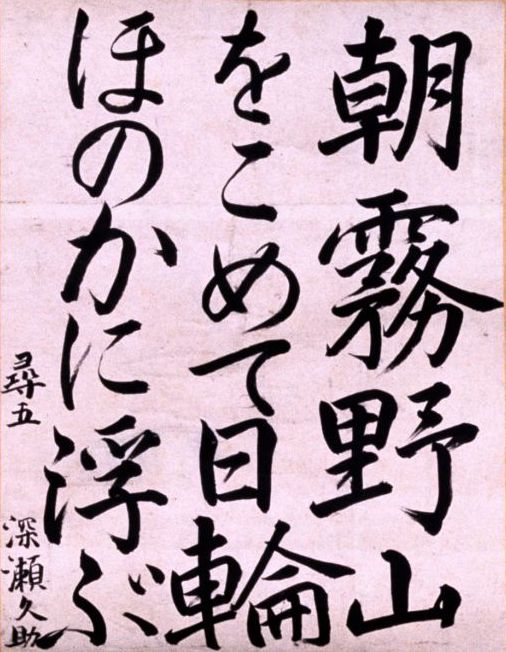 朝霧野山
をこめて日輪
ほのかに浮ぶ
尋五 深瀬久助